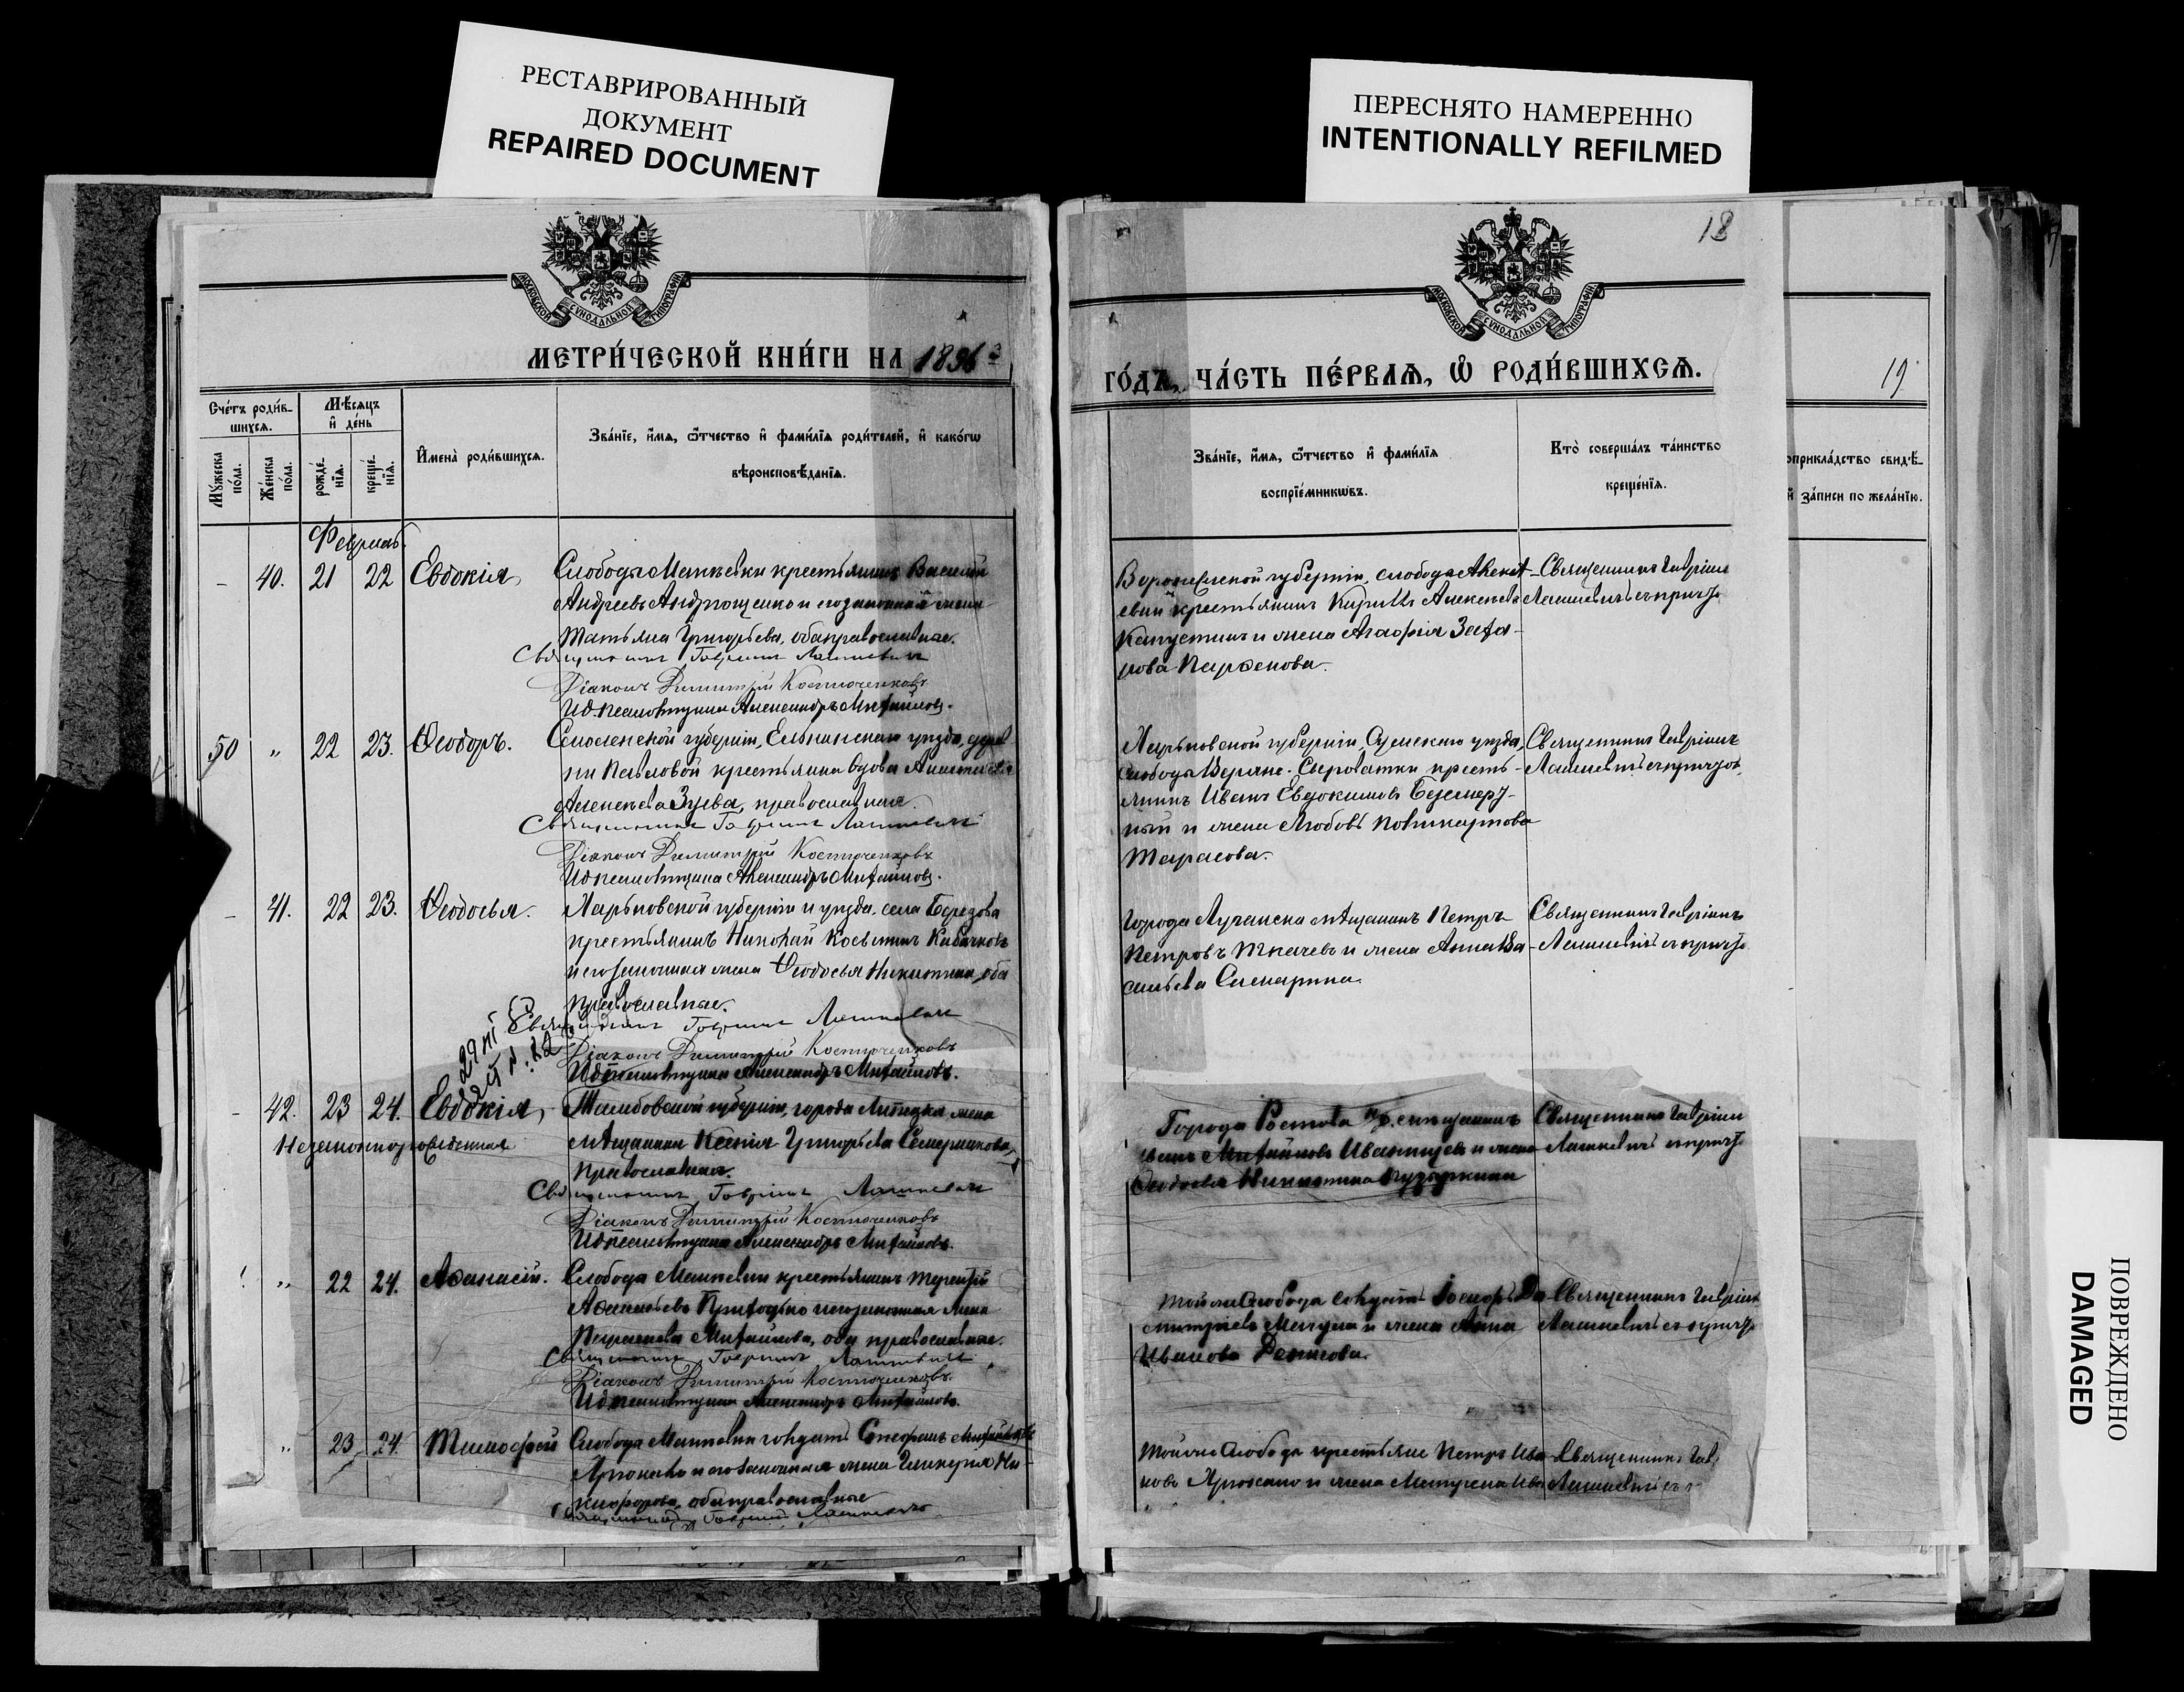 РЕСТАВРИРОВАННЫЙ
ДОКУМЕНТ
REPAIRED DOCUMENT
ПЕРЕСНЯТО НАМЕРЕННО
INTENTIONALLY REFILMED
МОСКОВСКОЙ СѴНОДАЛЬНОЙ ТИПОГРАФІИ
МЕТРИ́ЧЕСКОЙ КНИ́ГИ НА 1896
Сче́тъ роди́в-
шихся.
Мѣ́сяцъ
и҆ де́нь
Мꙋ́жеска
по́ла.
Же́нска
по́ла.
рожде́-
нїѧ.
креще́-
нїѧ.
И҆мена̀ роди́вшихсѧ.
Зва́нїе, и҆́мѧ, ѻ҆́тчество и҆ фами́лїѧ роди́телей, и҆ како́гѡ
вѣроисповѣ́данїѧ.
Февраль
- 40. 21 22 Евдокія
Слободы Макѣевки крестьянинъ Василій
Андреевъ Андрющенко и его законная жена
Татьяна Григорьева, оба православные.
Священникъ Гавріилъ Лашкевичъ
Діаконъ Димитрій Костюченковъ
Ид псаломщика Александръ Михайловъ.
50 " 22 23. Ѳеодоръ.
Смоленской губерніи, Ельнинскаго уѣзда, дерев
ни Павловой крестьянка вдова
Алексѣева Зуева, православная.
Священникъ Гавріилъ Лашкевичъ
Діаконъ Димитрій Костюченковъ
Ид псаломщика Александръ Михайловъ.
- 41. 22 23. Ѳеодосья.
Харьковской губерніи и уѣзда, села Березова
крестьянинъ Николай
и его законная жена Ѳеодосья Никитина, оба
православные.
Священникъ Гавріилъ Лашкевичъ
Діаконъ Димитрій Костюченковъ
Ид псаломщика Александръ Михайловъ.
- 42. 23 24. Евдокія,
Незаконнорожденная
Тамбовской губерніи, города Липецка жена
мѣщанина Ксенія Григорьева
православная.
Священникъ Гавріилъ Лашкевичъ
Діаконъ Димитрій Костюченковъ
Ид псаломщика Александръ Михайловъ.
" 22 24. Аѳанасій.
Слободы Макѣевки крестьянинъ Терентій
Аѳанасьевъ Приходько и его законная жена
Параскева Михайлова, оба православные.
Священникъ Гавріилъ Лашкевичъ
Діаконъ Димитрій Костюченковъ.
Ид псаломщика Александръ Михайловъ.
" 23 24. Тимоѳей
Слободы Макѣевки солдатъ Стефанъ
и его законная жена Гликерія Ни-
кифорова, оба православные
Священникъ Гавріилъ Лашкевичъ
18
МОСКОВСКОЙ СѴНОДАЛЬНОЙ ТИПОГРАФІИ
ГО́ДЪ, ЧА́СТЬ ПЕ́РВАѦ, Ѡ҆ РОДИ́ВШИХСѦ.
Зва́нїе, и҆́мѧ, ѻ҆́тчество и҆ фами́лїѧ
воспрїе́мникѡвъ.
Кто̀ соверша́лъ та́инство
креще́нїѧ.
19.
оприкла́дство свидѣ́-
й за́писи по жела́нїю.
Воронежской губерніи, слобода Алексѣ-
евки крестьянинъ Кириллъ Алексѣевъ
Капустинъ и жена Агафія Заха-
рова
Священникъ Гавріилъ
Лашкевичъ съ причтомъ
Харьковской губерніи, Сумскаго уѣзда,
слободы Верхне-Сыроватки кресть-
янинъ Иванъ Евдокимовъ
и жена Любовь Поликарпова
Тарасова.
Священникъ Гавріилъ
Лашкевичъ съ причтомъ
Города Луганска мѣщанинъ Петръ
Петровъ Ткачевъ и жена Анна Ва-
сильева
Священникъ Гавріилъ
Лашкевичъ съ причтомъ
Города Ростова н/Д. мѣщанинъ
Михайловъ и жена
Ѳеодосія Никитина
Священникъ Гавріилъ
Лашкевичъ съ причтомъ
Той же Слободы солдатъ Ди-
митріевъ и жена Анна
Иванова
Священникъ Гавріилъ
Лашкевичъ съ причтомъ
Той же Слободы крестьяне Петръ Ива-
новъ и жена
Священникъ Гав
Лашкевичъ съ
ПОВРЕЖДЕНО
DAMAGED